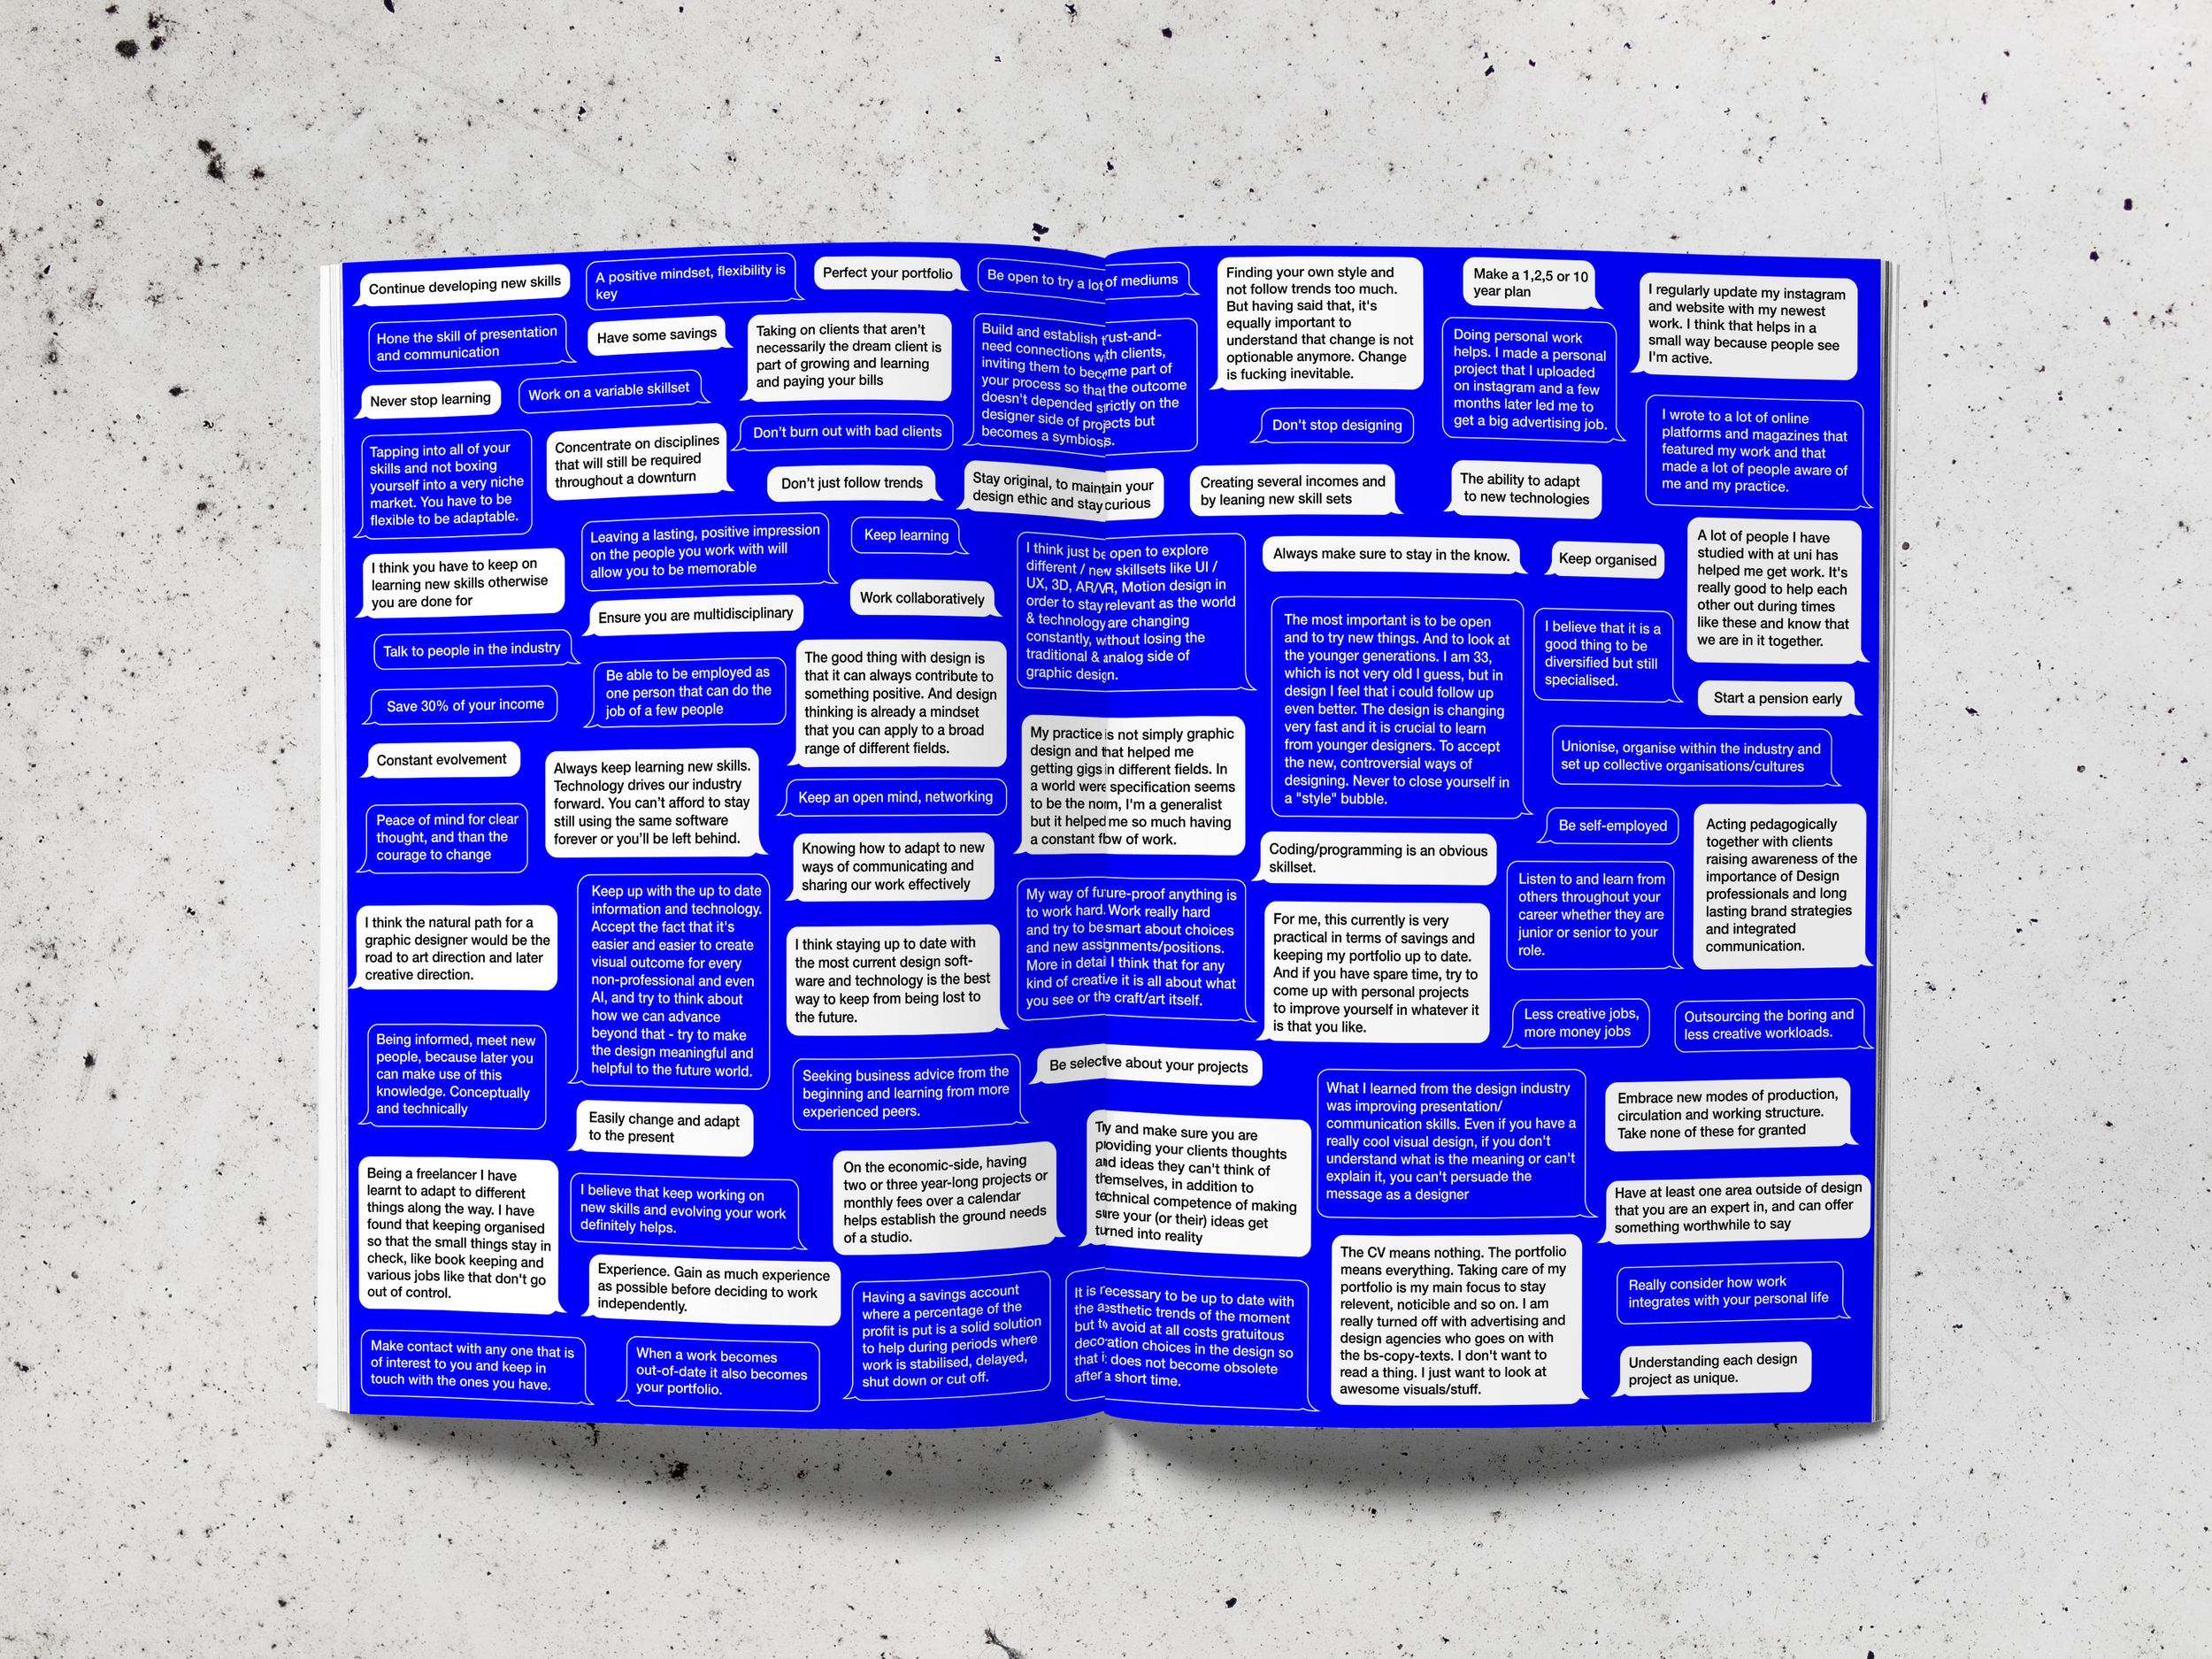 Continue developing new skills
A positive mindset, flexibility is
key
Perfect your portfolio
Be open to try a lot of mediums
Finding your own style and
not follow trends too much.
But having said that, it's
equally important to
understand that change is not
optionable anymore. Change
is fucking inevitable.
Make a 1,2,5 or 10
year plan
I regularly update my instagram
and website with my newest
work. I think that helps in a
small way because people see
I'm active.
Hone the skill of presentation
and communication
Have some savings
Taking on clients that aren't
necessarily the dream client is
part of growing and learning
and paying your bills
Build and establish trust-and-
need connections with clients,
inviting them to become part of
your process so that the outcome
doesn't depended strictly on the
designer side of projects but
becomes a symbiosis.
Doing personal work
helps. I made a personal
project that I uploaded
on instagram and a few
months later led me to
get a big advertising job.
Never stop learning
Work on a variable skillset
Don't burn out with bad clients
Don't stop designing
I wrote to a lot of online
platforms and magazines that
featured my work and that
made a lot of people aware of
me and my practice.
Tapping into all of your
skills and not boxing
yourself into a very niche
market. You have to be
flexible to be adaptable.
Concentrate on disciplines
that will still be required
throughout a downturn
Don't just follow trends
Stay original, to maintain your
design ethic and stay curious
Creating several incomes and
by leaning new skill sets
The ability to adapt
to new technologies
Leaving a lasting, positive impression
on the people you work with will
allow you to be memorable
Keep learning
I think just be open to explore
different / new skillsets like UI /
UX, 3D, AR/VR, Motion design in
order to stay relevant as the world
& technology are changing
constantly, without losing the
traditional & analog side of
graphic design.
Always make sure to stay in the know.
Keep organised
A lot of people I have
studied with at uni has
helped me get work. It's
really good to help each
other out during times
like these and know that
we are in it together.
I think you have to keep on
learning new skills otherwise
you are done for
Ensure you are multidisciplinary
Work collaboratively
The most important is to be open
and to try new things. And to look at
the younger generations. I am 33,
which is not very old I guess, but in
design I feel that i could follow up
even better. The design is changing
very fast and it is crucial to learn
from younger designers. To accept
the new, controversial ways of
designing. Never to close yourself in
a "style" bubble.
I believe that it is a
good thing to be
diversified but still
specialised.
Talk to people in the industry
Be able to be employed as
one person that can do the
job of a few people
The good thing with design is
that it can always contribute to
something positive. And design
thinking is already a mindset
that you can apply to a broad
range of different fields.
Start a pension early
Save 30% of your income
My practice is not simply graphic
design and that helped me
getting gigs in different fields. In
a world were specification seems
to be the norm, I'm a generalist
but it helped me so much having
a constant flow of work.
Unionise, organise within the industry and
set up collective organisations/cultures
Constant evolvement
Always keep learning new skills.
Technology drives our industry
forward. You can't afford to stay
still using the same software
forever or you'll be left behind.
Keep an open mind, networking
Be self-employed
Acting pedagogically
together with clients
raising awareness of the
importance of Design
professionals and long
lasting brand strategies
and integrated
communication.
Peace of mind for clear
thought, and than the
courage to change
Knowing how to adapt to new
ways of communicating and
sharing our work effectively
Coding/programming is an obvious
skillset.
Listen to and learn from
others throughout your
career whether they are
junior or senior to your
role.
Keep up with the up to date
information and technology.
Accept the fact that it's
easier and easier to create
visual outcome for every
non-professional and even
AI, and try to think about
how we can advance
beyond that - try to make
the design meaningful and
helpful to the future world.
My way of future-proof anything is
to work hard. Work really hard
and try to be smart about choices
and new assignments/positions.
More in detail I think that for any
kind of creative it is all about what
you see or the craft/art itself.
For me, this currently is very
practical in terms of savings and
keeping my portfolio up to date.
And if you have spare time, try to
come up with personal projects
to improve yourself in whatever it
is that you like.
I think the natural path for a
graphic designer would be the
road to art direction and later
creative direction.
I think staying up to date with
the most current design soft-
ware and technology is the best
way to keep from being lost to
the future.
Less creative jobs,
more money jobs
Outsourcing the boring and
less creative workloads.
Being informed, meet new
people, because later you
can make use of this
knowledge. Conceptually
and technically
Seeking business advice from the
beginning and learning from more
experienced peers.
Be selective about your projects
What I learned from the design industry
was improving presentation/
communication skills. Even if you have a
really cool visual design, if you don't
understand what is the meaning or can't
explain it, you can't persuade the
message as a designer
Embrace new modes of production,
circulation and working structure.
Take none of these for granted
Easily change and adapt
to the present
Try and make sure you are
providing your clients thoughts
and ideas they can't think of
themselves, in addition to
technical competence of making
sure your (or their) ideas get
turned into reality
Being a freelancer I have
learnt to adapt to different
things along the way. I have
found that keeping organised
so that the small things stay in
check, like book keeping and
various jobs like that don't go
out of control.
I believe that keep working on
new skills and evolving your work
definitely helps.
On the economic-side, having
two or three year-long projects or
monthly fees over a calendar
helps establish the ground needs
of a studio.
Have at least one area outside of design
that you are an expert in, and can offer
something worthwhile to say
Experience. Gain as much experience
as possible before deciding to work
independently.
The CV means nothing. The portfolio
means everything. Taking care of my
portfolio is my main focus to stay
relevent, noticible and so on. I am
really turned off with advertising and
design agencies who goes on with
the bs-copy-texts. I don't want to
read a thing. I just want to look at
awesome visuals/stuff.
Really consider how work
integrates with your personal life
Having a savings account
where a percentage of the
profit is put is a solid solution
to help during periods where
work is stabilised, delayed,
shut down or cut off.
It is necessary to be up to date with
the aesthetic trends of the moment
but to avoid at all costs gratuitous
decoration choices in the design so
that it does not become obsolete
after a short time.
Make contact with any one that is
of interest to you and keep in
touch with the ones you have.
When a work becomes
out-of-date it also becomes
your portfolio.
Understanding each design
project as unique.